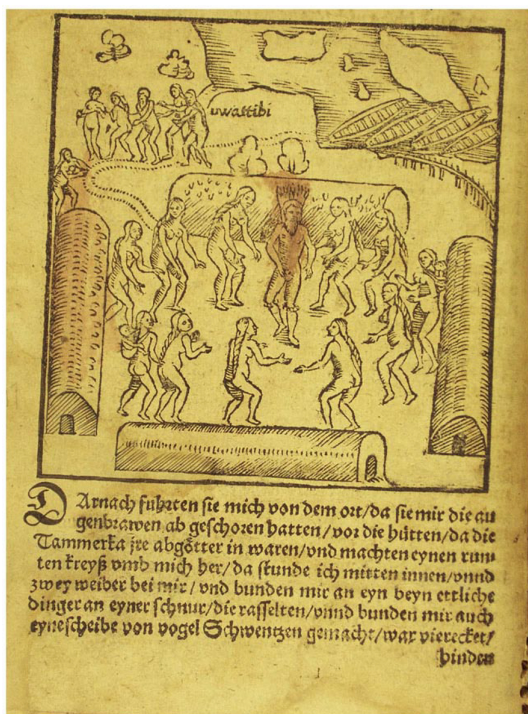 uwattibi
DArnach fuhrten sie mich von dem ort/da sie mir die au
genbrawen ab geschoren hatten/vor die hütten/da die
Tammerka jre abgötter in waren/vnd machten eynen run
ten kreyß vmb mich her/da stunde ich mitten innen/vnnd
zwey weiber bei mir/vnd bunden mir an eyn beyn ettliche
dinger an eyner schnur/die rasselten/vnnd bunden mir auch
eyne scheibe von vogel Schwentzen gemacht/war vierecket/
hinden